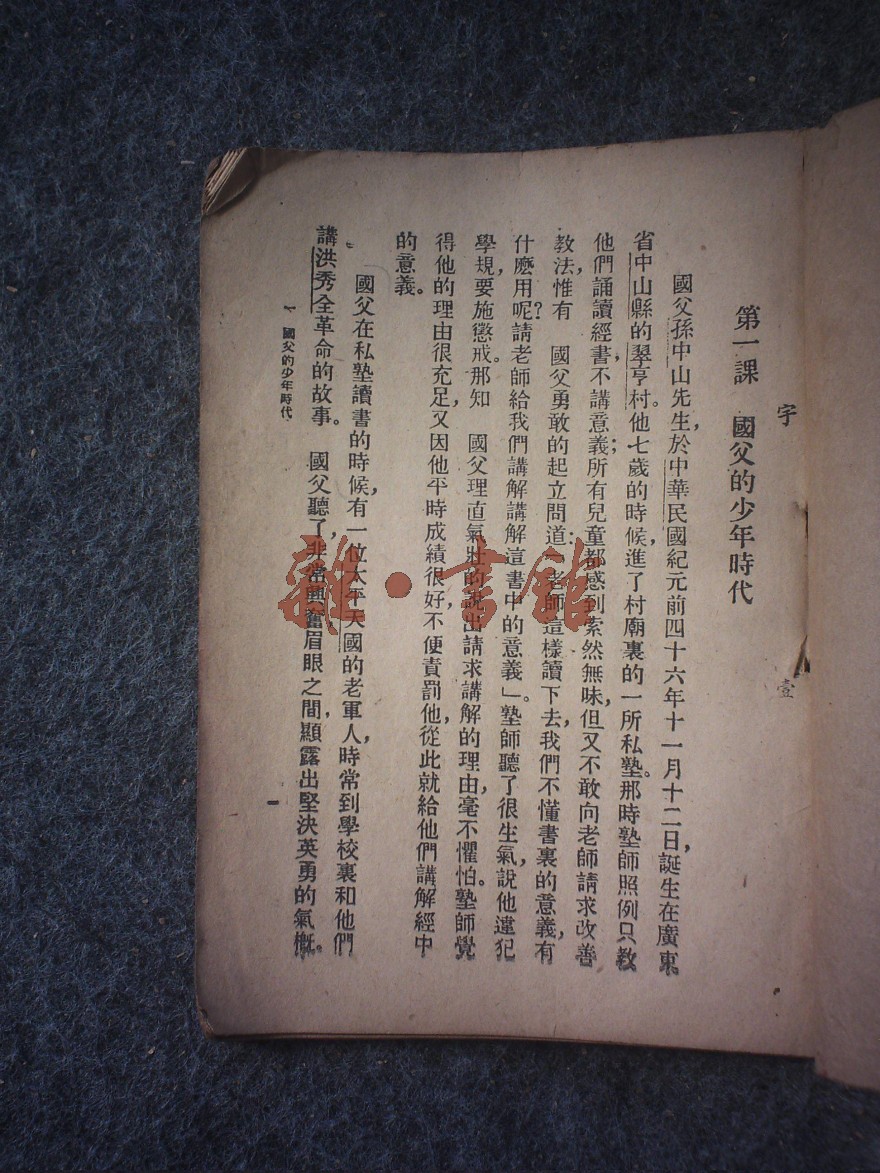 字
壹
第一課　國父的少年時代
國父孫中山先生，於中華民國紀元前四十六年十一月十二日，誕生在廣東
省中山縣的翠亨村。他七歲的時候，進了村廟裏的一所私塾。那時塾師照例只教
他們誦讀經書，不講意義；所有兒童都感到索然無味，但又不敢向老師請求改善
教法，惟有　國父勇敢的起立問道：「老師這樣讀下去，我們不懂書裏的意義，有
什麽用呢？請老師給我們講解講解這書中的意義」。塾師聽了很生氣，說他違犯
學規，要施懲戒。那知　國父理直氣壯的說出請求講解的理由，毫不懼怕。塾師覺
得他的理由很充足，又因他平時成績很好，不便責罰他，從此就給他們講解經中
的意義。
國父在私塾讀書的時候，有一位太平天國的老軍人，時常到學校裏和他們
講洪秀全革命的故事。　國父聽了，非常興奮，眉眼之間，顯露出堅決英勇的氣概。
一　國父的少年時代
一
雜·書館